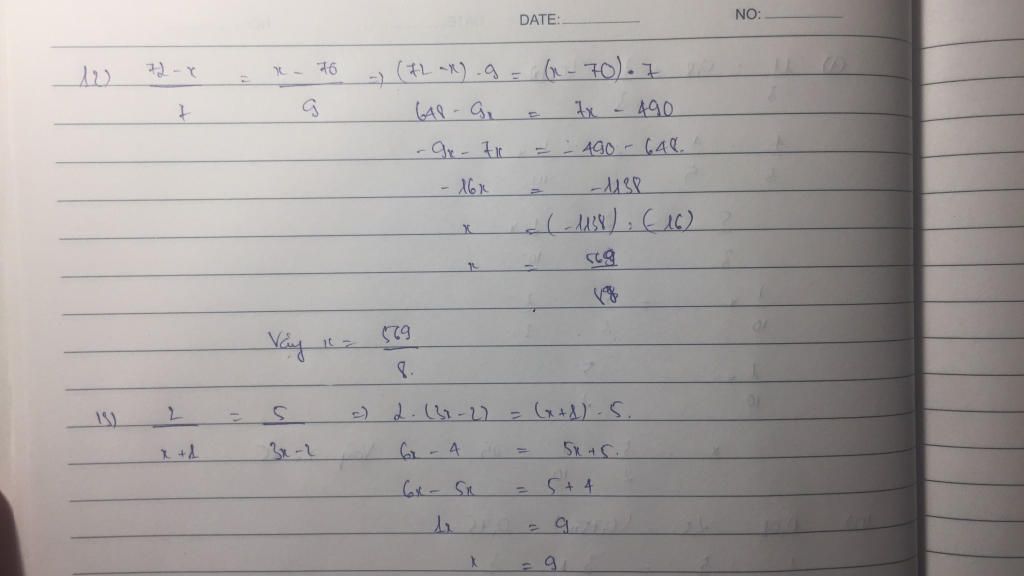 DATE: NO:
12) (72 - x)/7 = (x - 70)/9 => (72 - x) · 9 = (x - 70) · 7
648 - 9x = 7x - 490
-9x - 7x = -490 - 648.
-16x = -1138
x = (-1138) : (-16)
x = 569/8
Vậy x = 569/8.
13) 2/(x+1) = 5/(3x-2) => 2 · (3x-2) = (x+1) · 5.
6x - 4 = 5x + 5.
6x - 5x = 5 + 4
1x = 9
x = 9